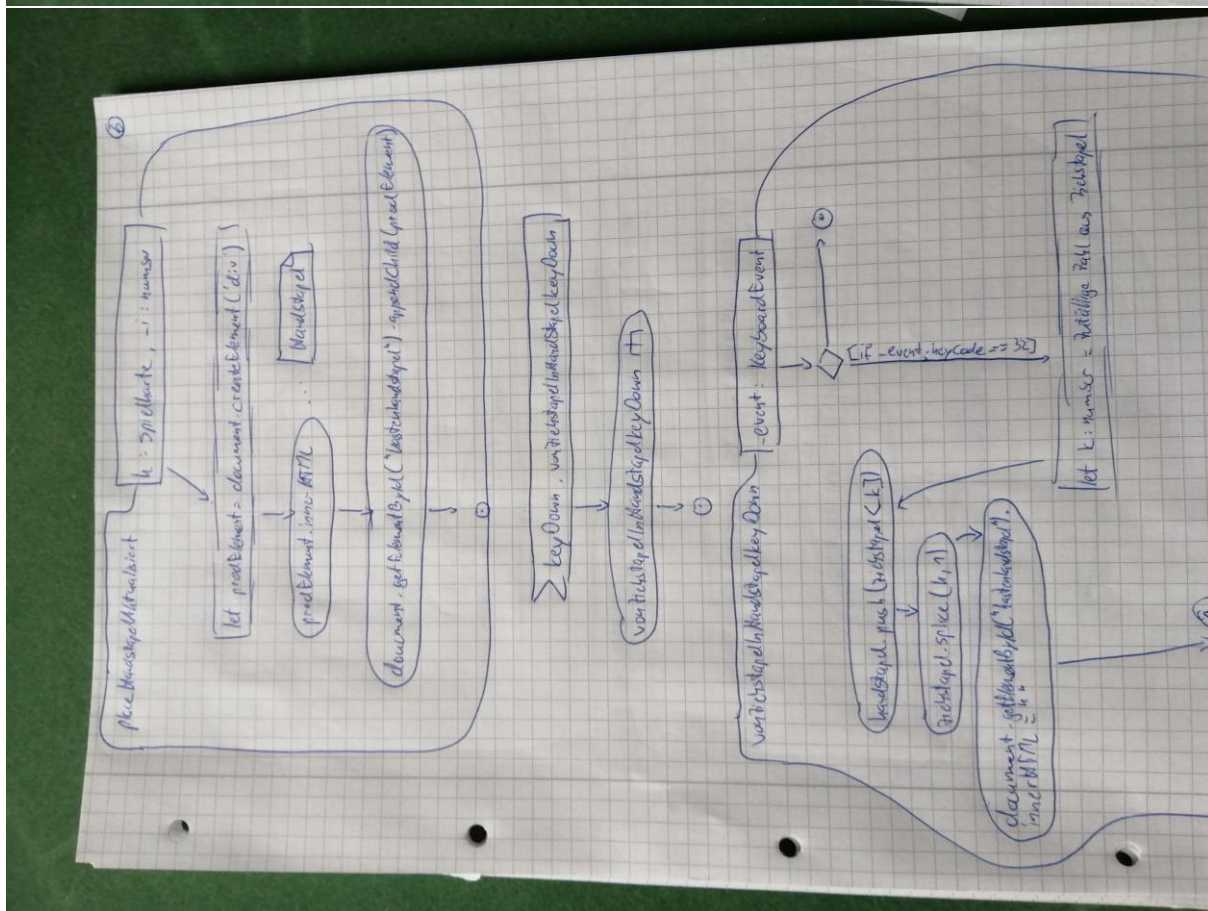 ⑥
k : Spielkarte, _i : number
let prodElement = document.createElement('div')
prodElement.innerHTML ...
Handstapel
document.getElementById("kartenhandstapel").appendChild(prodElement)
keyDown, vonZiehstapelInHandstapelkeyDown
vonZiehstapelInHandstapelkeyDown
vonZiehstapelInHandstapelkeyDown
_event: KeyboardEvent
[if _event.keyCode == 32]
let k: number = Zufällige Zahl aus Ziehstapel
handstapel.push(ziehstapel[k])
ziehstapel.splice(k,1)
document.getElementById("kartenhandstapel").
innerHTML = ""